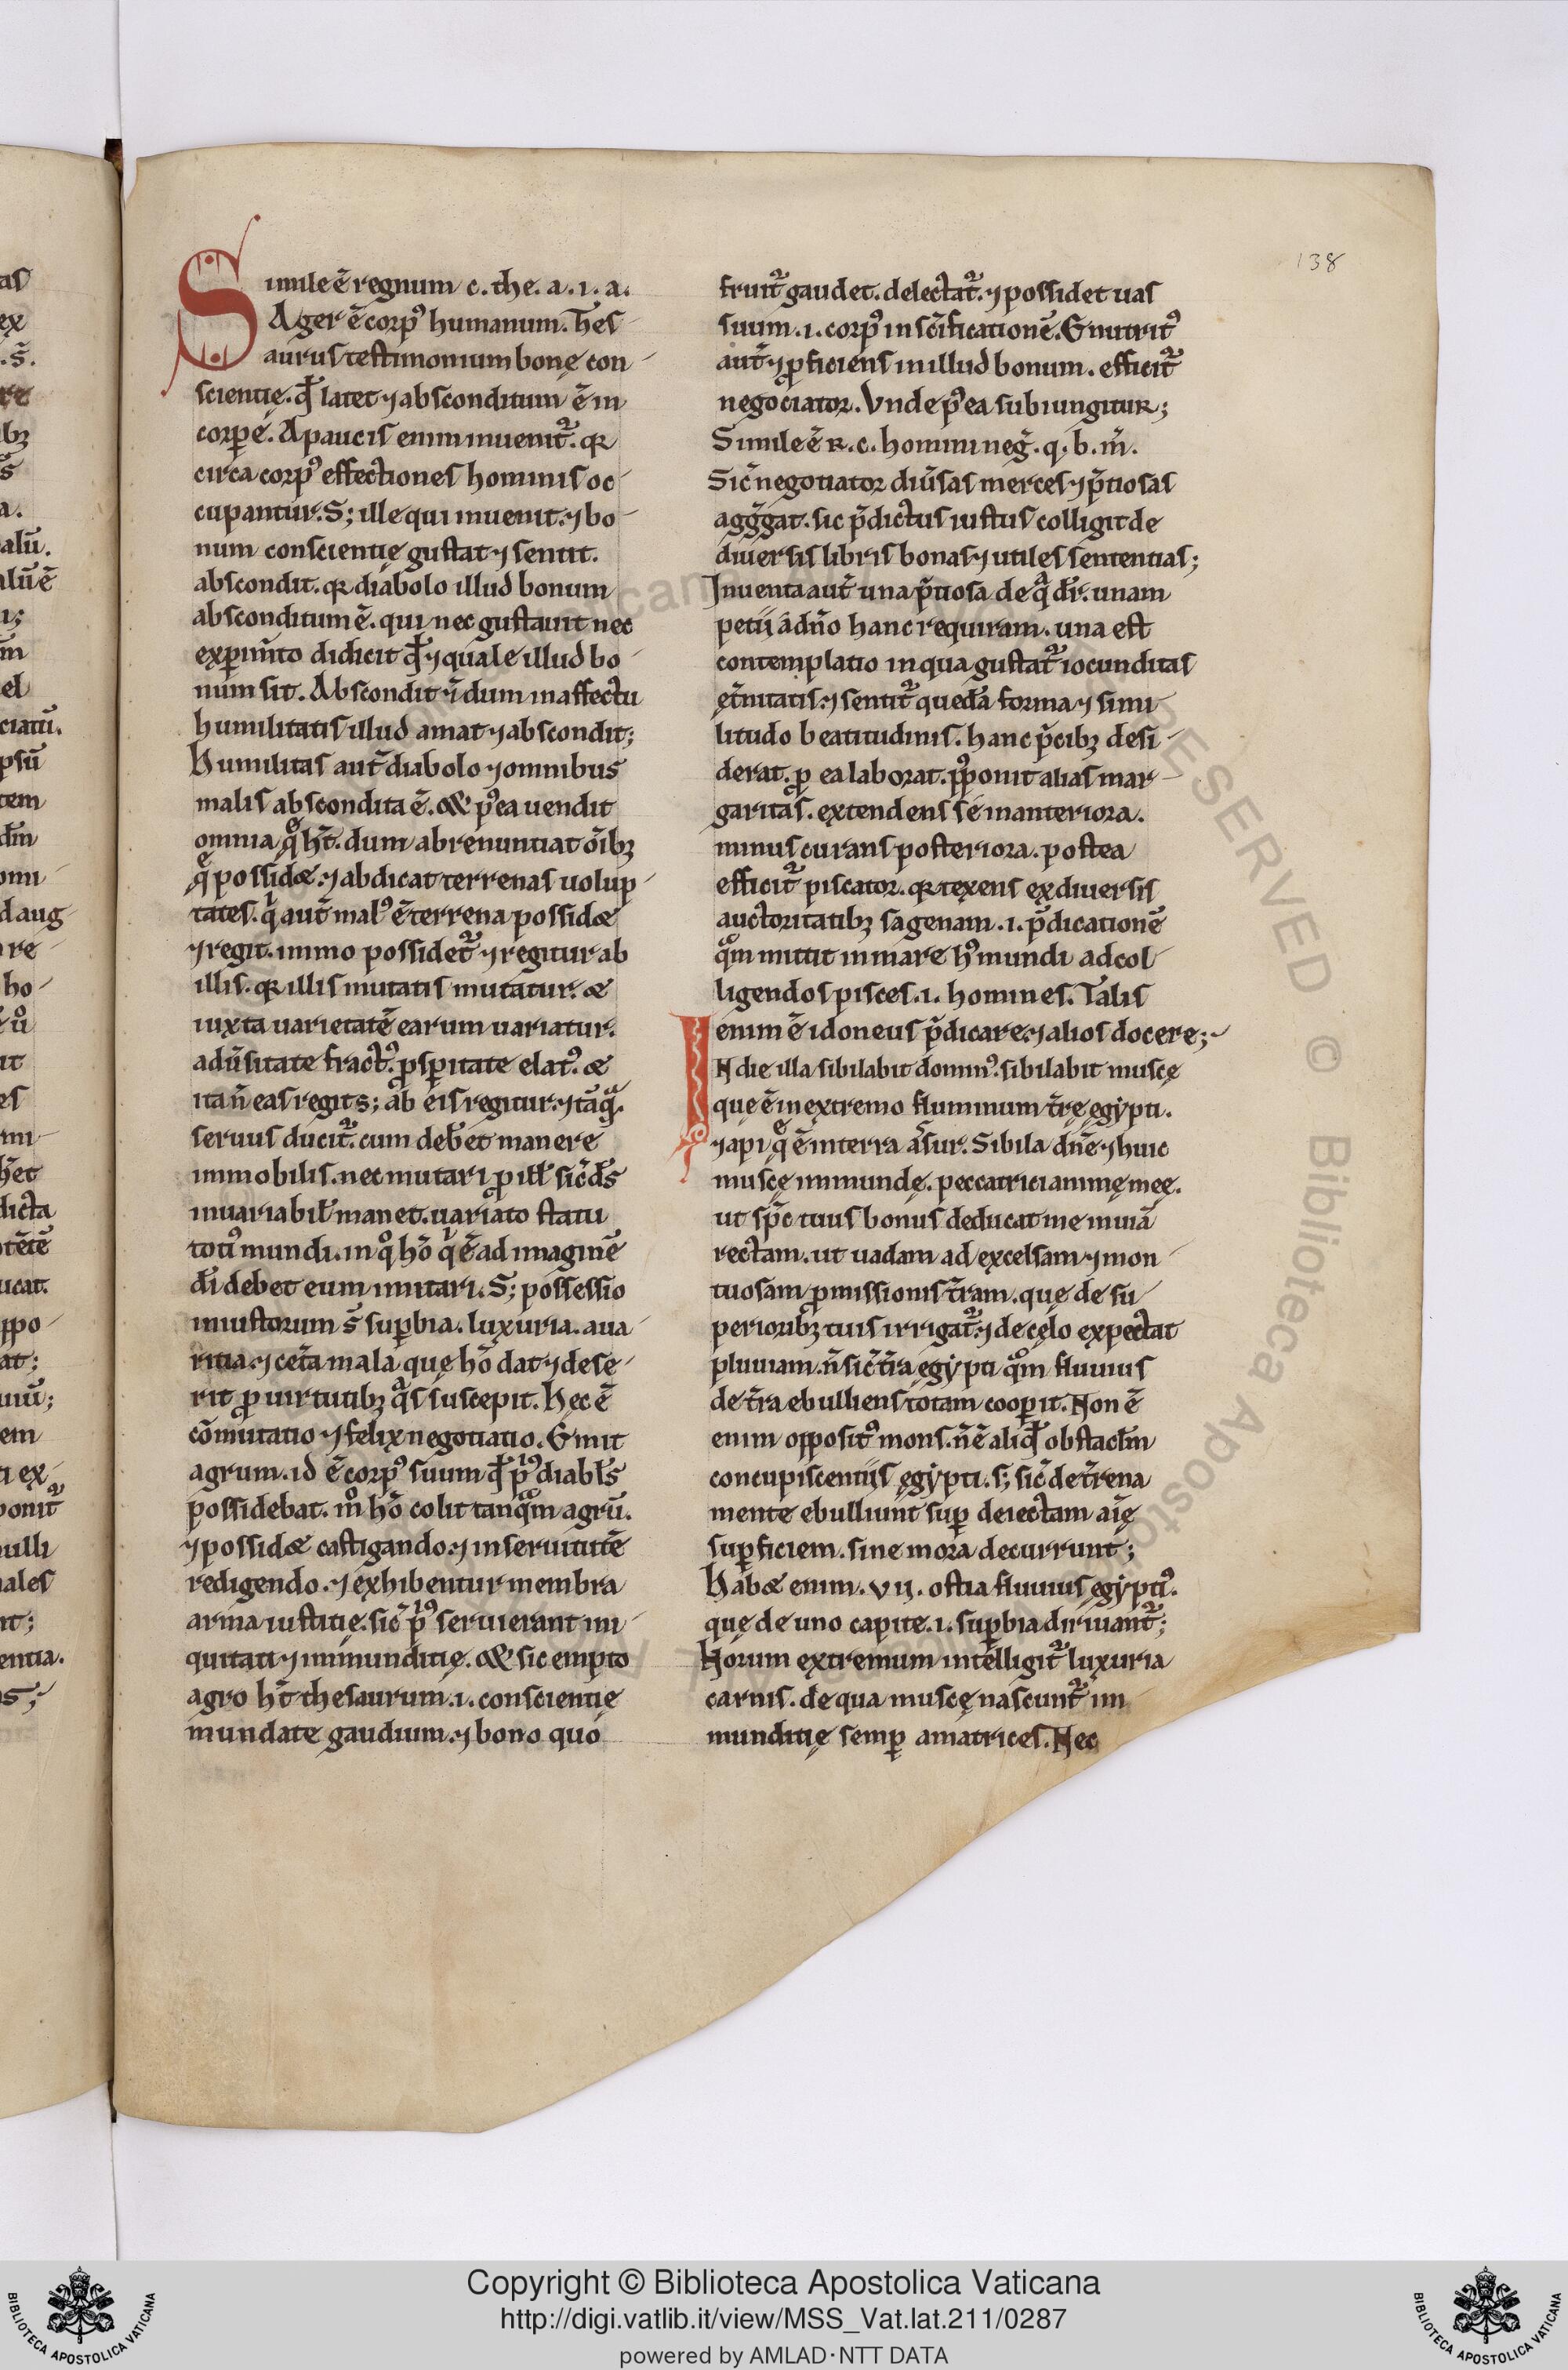 138
Simile ē regnum c. the. a. i. a.
Ager ē corpꝰ humanum. Thes-
aurus testimonium bonę con-
scientię. qđ latet ⁊ absconditum ē in
corpꝑe. A paucis enim inuenit᷑. qꝛ
circa corpꝰ effectiones hominis oc-
cupantur. S; ille qui inuenit. ⁊ bo-
num conscientię gustat ⁊ sentit.
abscondit. qꝛ diabolo illud bonum
absconditum ē. qui nec gustauit nec
exꝑim̄to didicit qđ ⁊ quale illud bo-
num sit. Abscondit ⁊̄ dum in affectu
humilitatis illud amat ⁊ abscondit;
Humilitas aut̄ diabolo ⁊ omnibus
malis abscondita ē. & pꝰea uendit
omnia qͤ ht̄. dum abrenuntiat oībꝫ
qͤ possidet. ⁊ abdicat terrenas uolup-
tates. qͥ aut̄ malꝰ ē terrena possidet
⁊ regit. immo possidet᷑ ⁊ regitur ab
illis. qꝛ illis mutatis mutatur. et
iuxta uarietatē earum uariatur.
adūsitate fractꝰ. ꝓsꝑitate elatꝰ. et
ita n̄ eas regit s; ab eis regitur. ⁊ tāqᷓ
seruus ducit᷑. cum deb&et manere
immobilis. nec mutari ꝑ ill̄. sic̄ dꝰs
inuariabil̄ manet. uariato statu
totiꝰ mundi. in qͦ hō qͥ ē ad imaginē
dī debet eum imitari. S; possessio
iniustorum s̄ suꝑbia. luxuria. aua-
ritia. ⁊ cet̄a mala quę hō dat ⁊ dese-
rit ꝓ uirtutibꝫ qᷓs suscepit. Hec ē
cōmutatio ⁊ felix negotiatio. Emit
agrum. id ē corpꝰ suum qđ pͥꝰ diabl̄s
possidebat. mͦ hō colit tanqᷓm agrū.
⁊ possidet castigando. ⁊ in seruitutē
redigendo. ⁊ exhibentur membra
arma iustitię. sic̄ pͥꝰ seruierant ini-
quitati ⁊ immunditię. & sic empto
agro ht̄ thesaurum .i. conscientię
mundate gaudium. ⁊ bono quo
fruit᷑ gaudet. delectat᷑. ⁊ possidet uas
suum .i. corpꝰ in sc̄ificationē. Enutritꝰ
aut̄ ⁊ ꝓficiens in illud bonum. efficit᷑
negociator. Vnde pꝰea subiungitur;
Simile ē r. c. homini neḡ. q. b. m̄.
Sic̄ negotiator diūsas merces ⁊ p̄tiosas
agḡgat. sic p̄dictus iustus colligit de
diuersis libris bonas ⁊ utiles sententias;
Inuenta aut̄ una p̄tiosa de qᷓ dr̄. unam
petii a dn̄o hanc requiram. una est
contemplatio in qua gustat᷑ iocunditas
ęt̄nitatis. ⁊ sentit᷑ quedā forma ⁊ simi-
litudo beatitudinis. hanc p̄cibꝫ desi-
derat. ꝓ ea laborat. p̄ponit alias mar-
garitas. extendens se in anteriora.
minus curans posteriora. postea
efficit᷑ piscator. qꝛ texens ex diuersis
auctoritatibꝫ sagenam .i. p̄dicationē
qᷓm mittit in mare hꝰ mundi ad col-
ligendos pisces .i. homines. Talis
enim ē idoneus p̄dicare. ⁊ alios docere;
In die illa sibilabit dominꝰ. sibilabit muscę
que ē in extremo fluminum t̄rę egypti.
⁊ api qͤ ē in terra assur. Sibila dn̄e ⁊ huic
muscę immundę. peccatrici animę meę.
ut sp̄c tuus bonus deducat me in uiā
rectam. ut uadam ad excelsam ⁊ mon-
tuosam ꝓmissionis t̄ram. que de su-
perioribꝫ tuis irrigat᷑. ⁊ de cęlo expectat
pluuiam. n̄ sic̄ t̄ra ęgypti qᷓm fluuius
de t̄ra ebulliens totam cooꝑit. Non ē
enim oppositꝰ mons. n̄ ē aliqđ obstacl̄m
concupiscentiis ęgypti. s; sic̄ de t̄rena
mente ebulliunt suꝑ deiectam aīę
suꝑficiem. sine mora decurrunt;
Habet enim .VII. ostia fluuius ęgyptiꝰ.
que de uno capite .i. suꝑbia diriuant᷑;
Horum extremum intelligit᷑ luxuria
carnis. de qua muscę nascunt᷑ im
munditię semꝑ amatrices. Nec
Copyright © Biblioteca Apostolica Vaticana
http://digi.vatlib.it/view/MSS_Vat.lat.211/0287
powered by AMLAD·NTT DATA
BIBLIOTECA APOSTOLICA VATICANA
BIBLIOTECA APOSTOLICA VATICANA